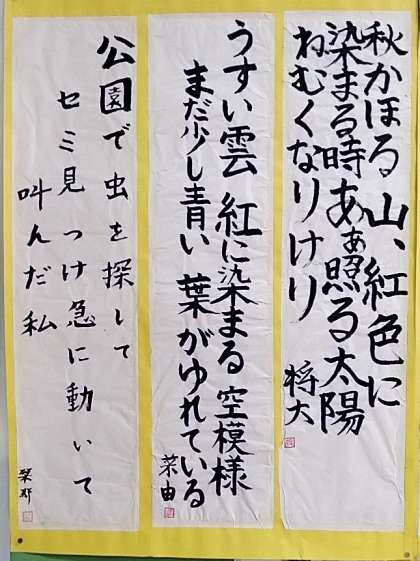 秋かほる 山、紅色に
染まる時 あぁ照る太陽
ねむくなりけり
将大
うすい雲 紅に染まる 空模様
まだ少し青い 葉がゆれている
菜由
公園で 虫を探して
セミ見つけ 急に動いて
叫んだ私
栞那